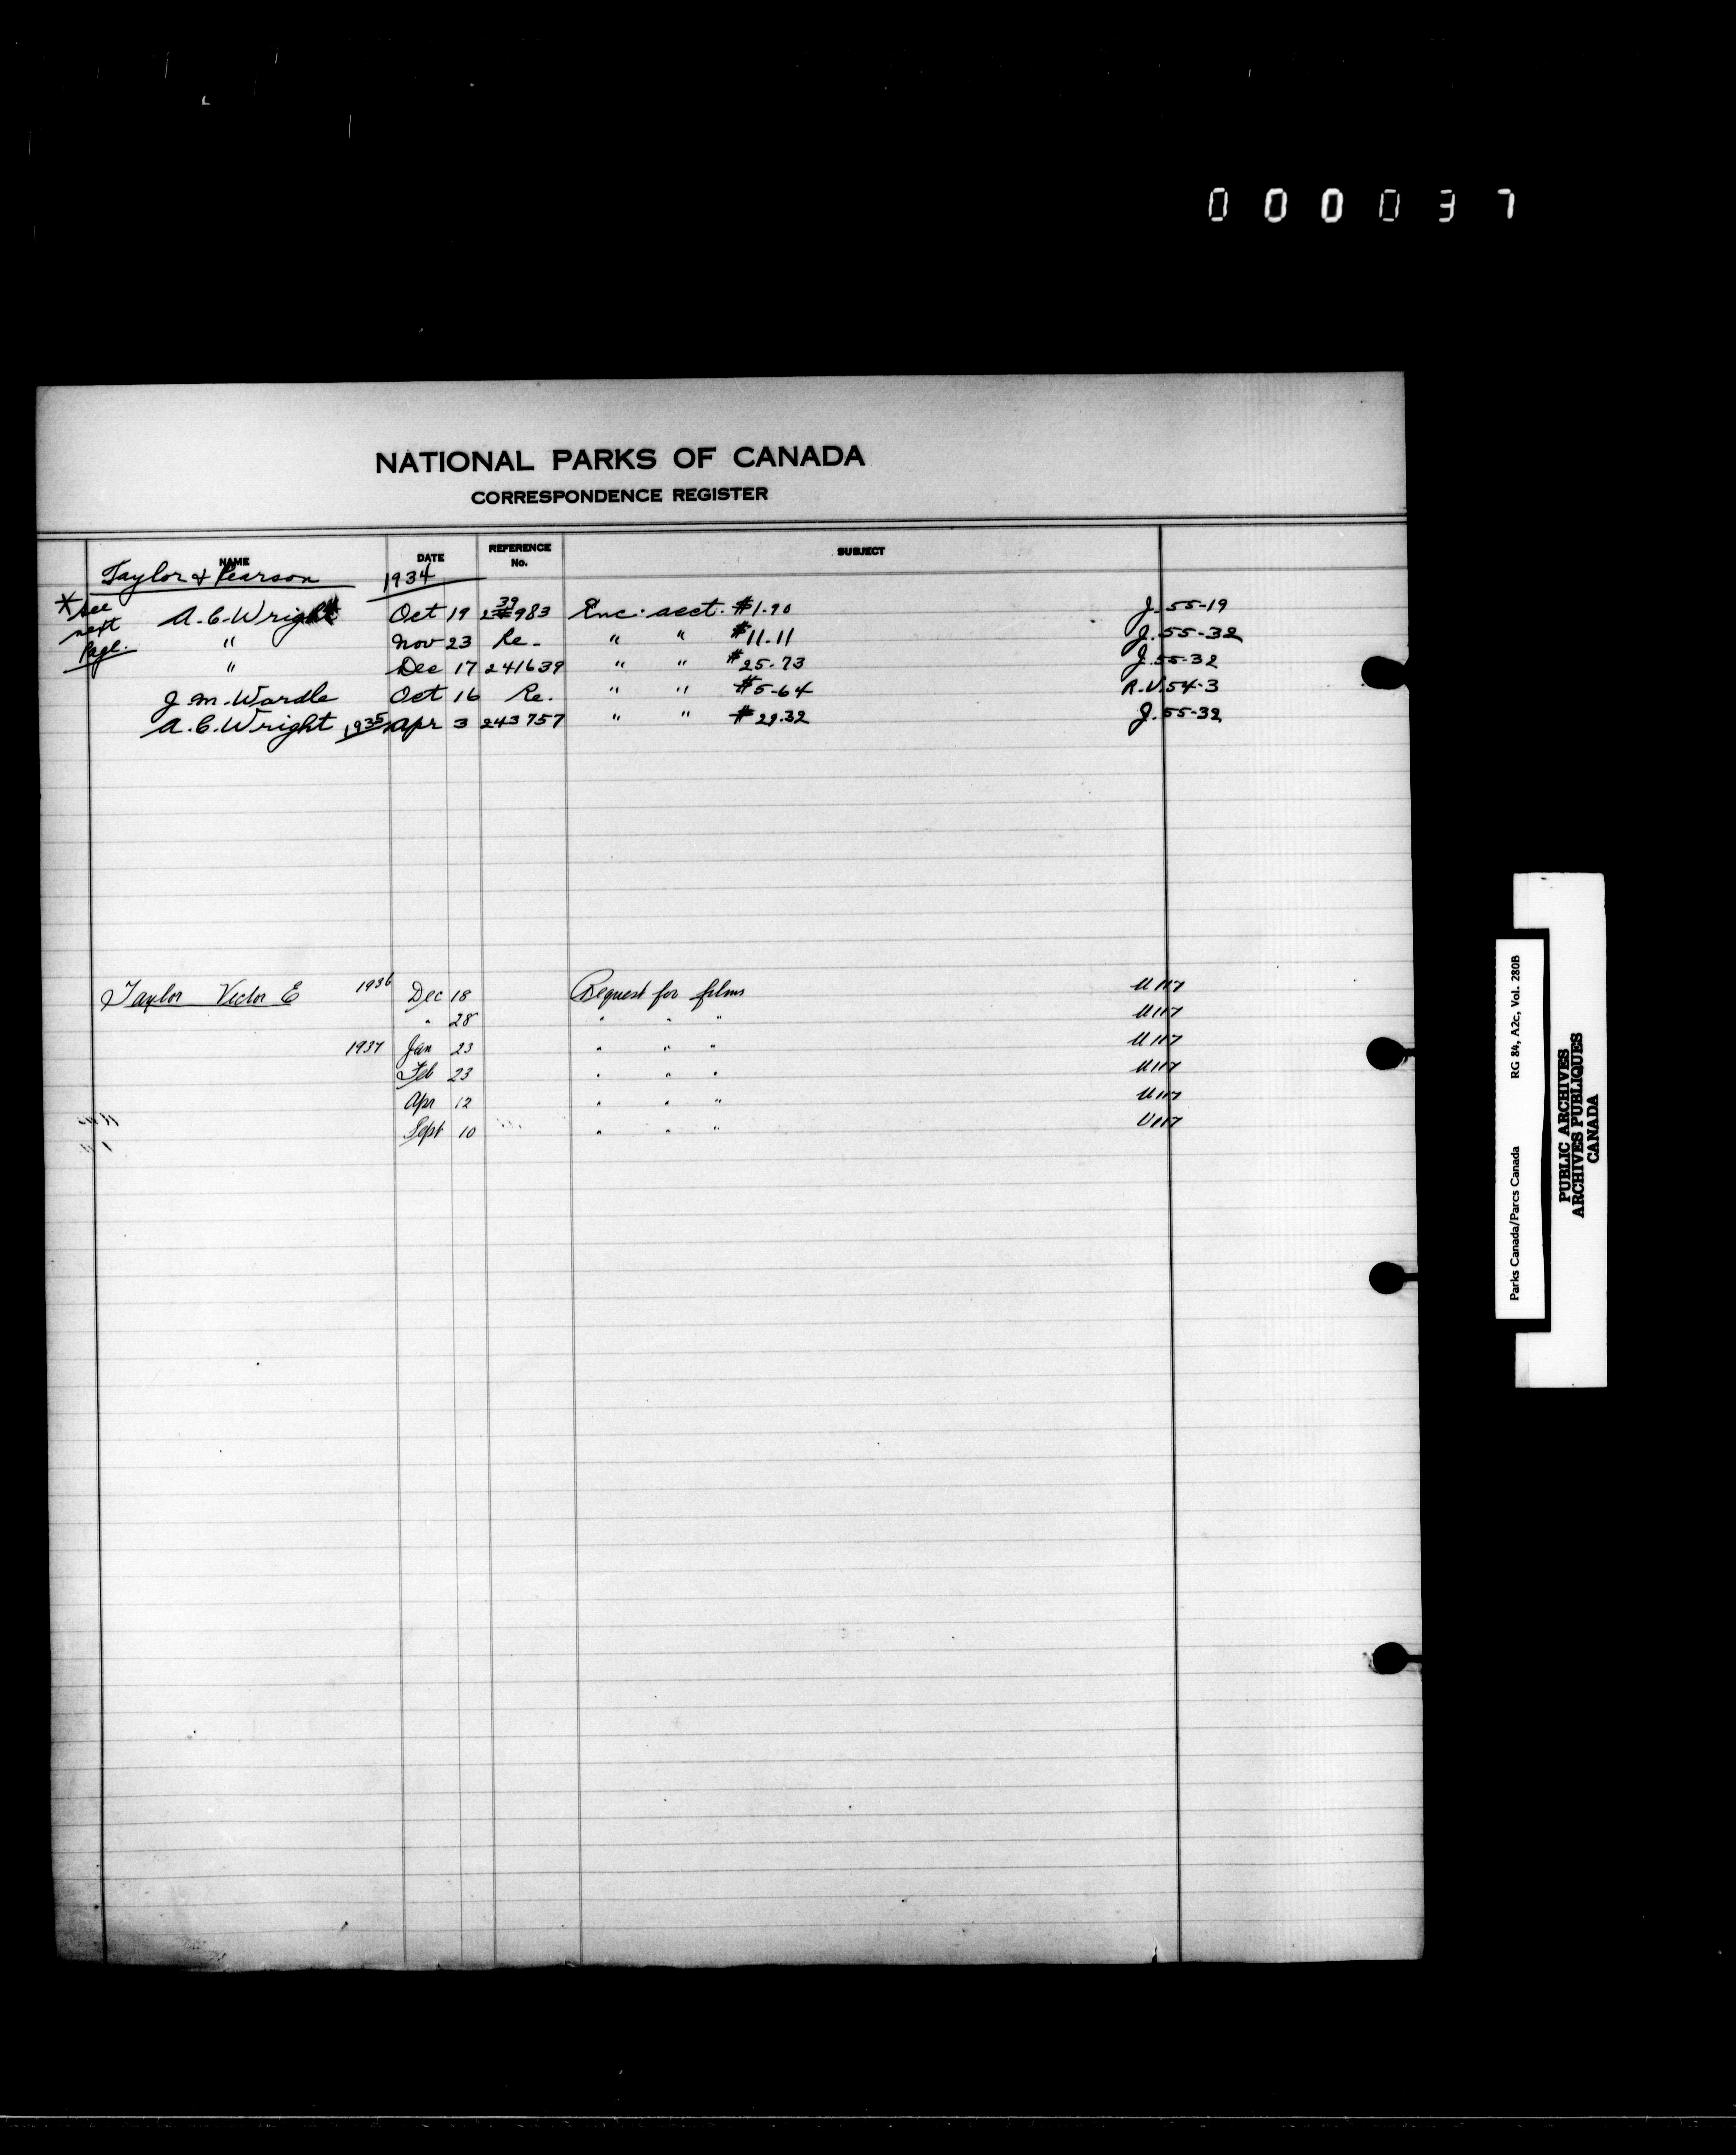 000037
NATIONAL PARKS OF CANADA
CORRESPONDENCE REGISTER
NAME DATE REFERENCE No. SUBJECT
Taylor & Pearson 1934
* see next Page.
A.C. Wright Oct 19 239983 Enc. acct. $1.90 J. 55-19
" Nov 23 Re. " " $11.11 J. 55-32
" Dec 17 241639 " " $25.73 J. 55-32
J. M. Wardle Oct 16 Re. " " $5-64 R.V. 54-3
A.C. Wright 1935 Apr 3 243757 " " $29.32 J. 55-32
Taylor Victor E 1936 Dec 18 Request for films U 117
" 28 " " " U117
1937 Jan 23 " " " U117
Feb 23 " " " U117
Apr 12 " " " U117
Sept 10 " " " U117
Parks Canada/Parcs Canada RG 84, A2c, Vol. 280B
PUBLIC ARCHIVES
ARCHIVES PUBLIQUES
CANADA